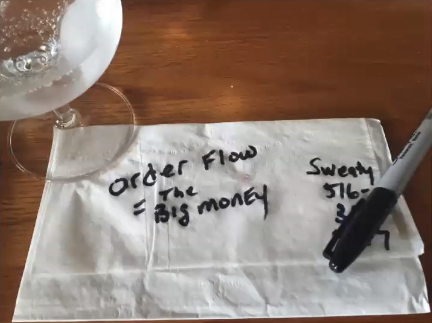 Order Flow
= The
Big MONEY
Sweaty
516-